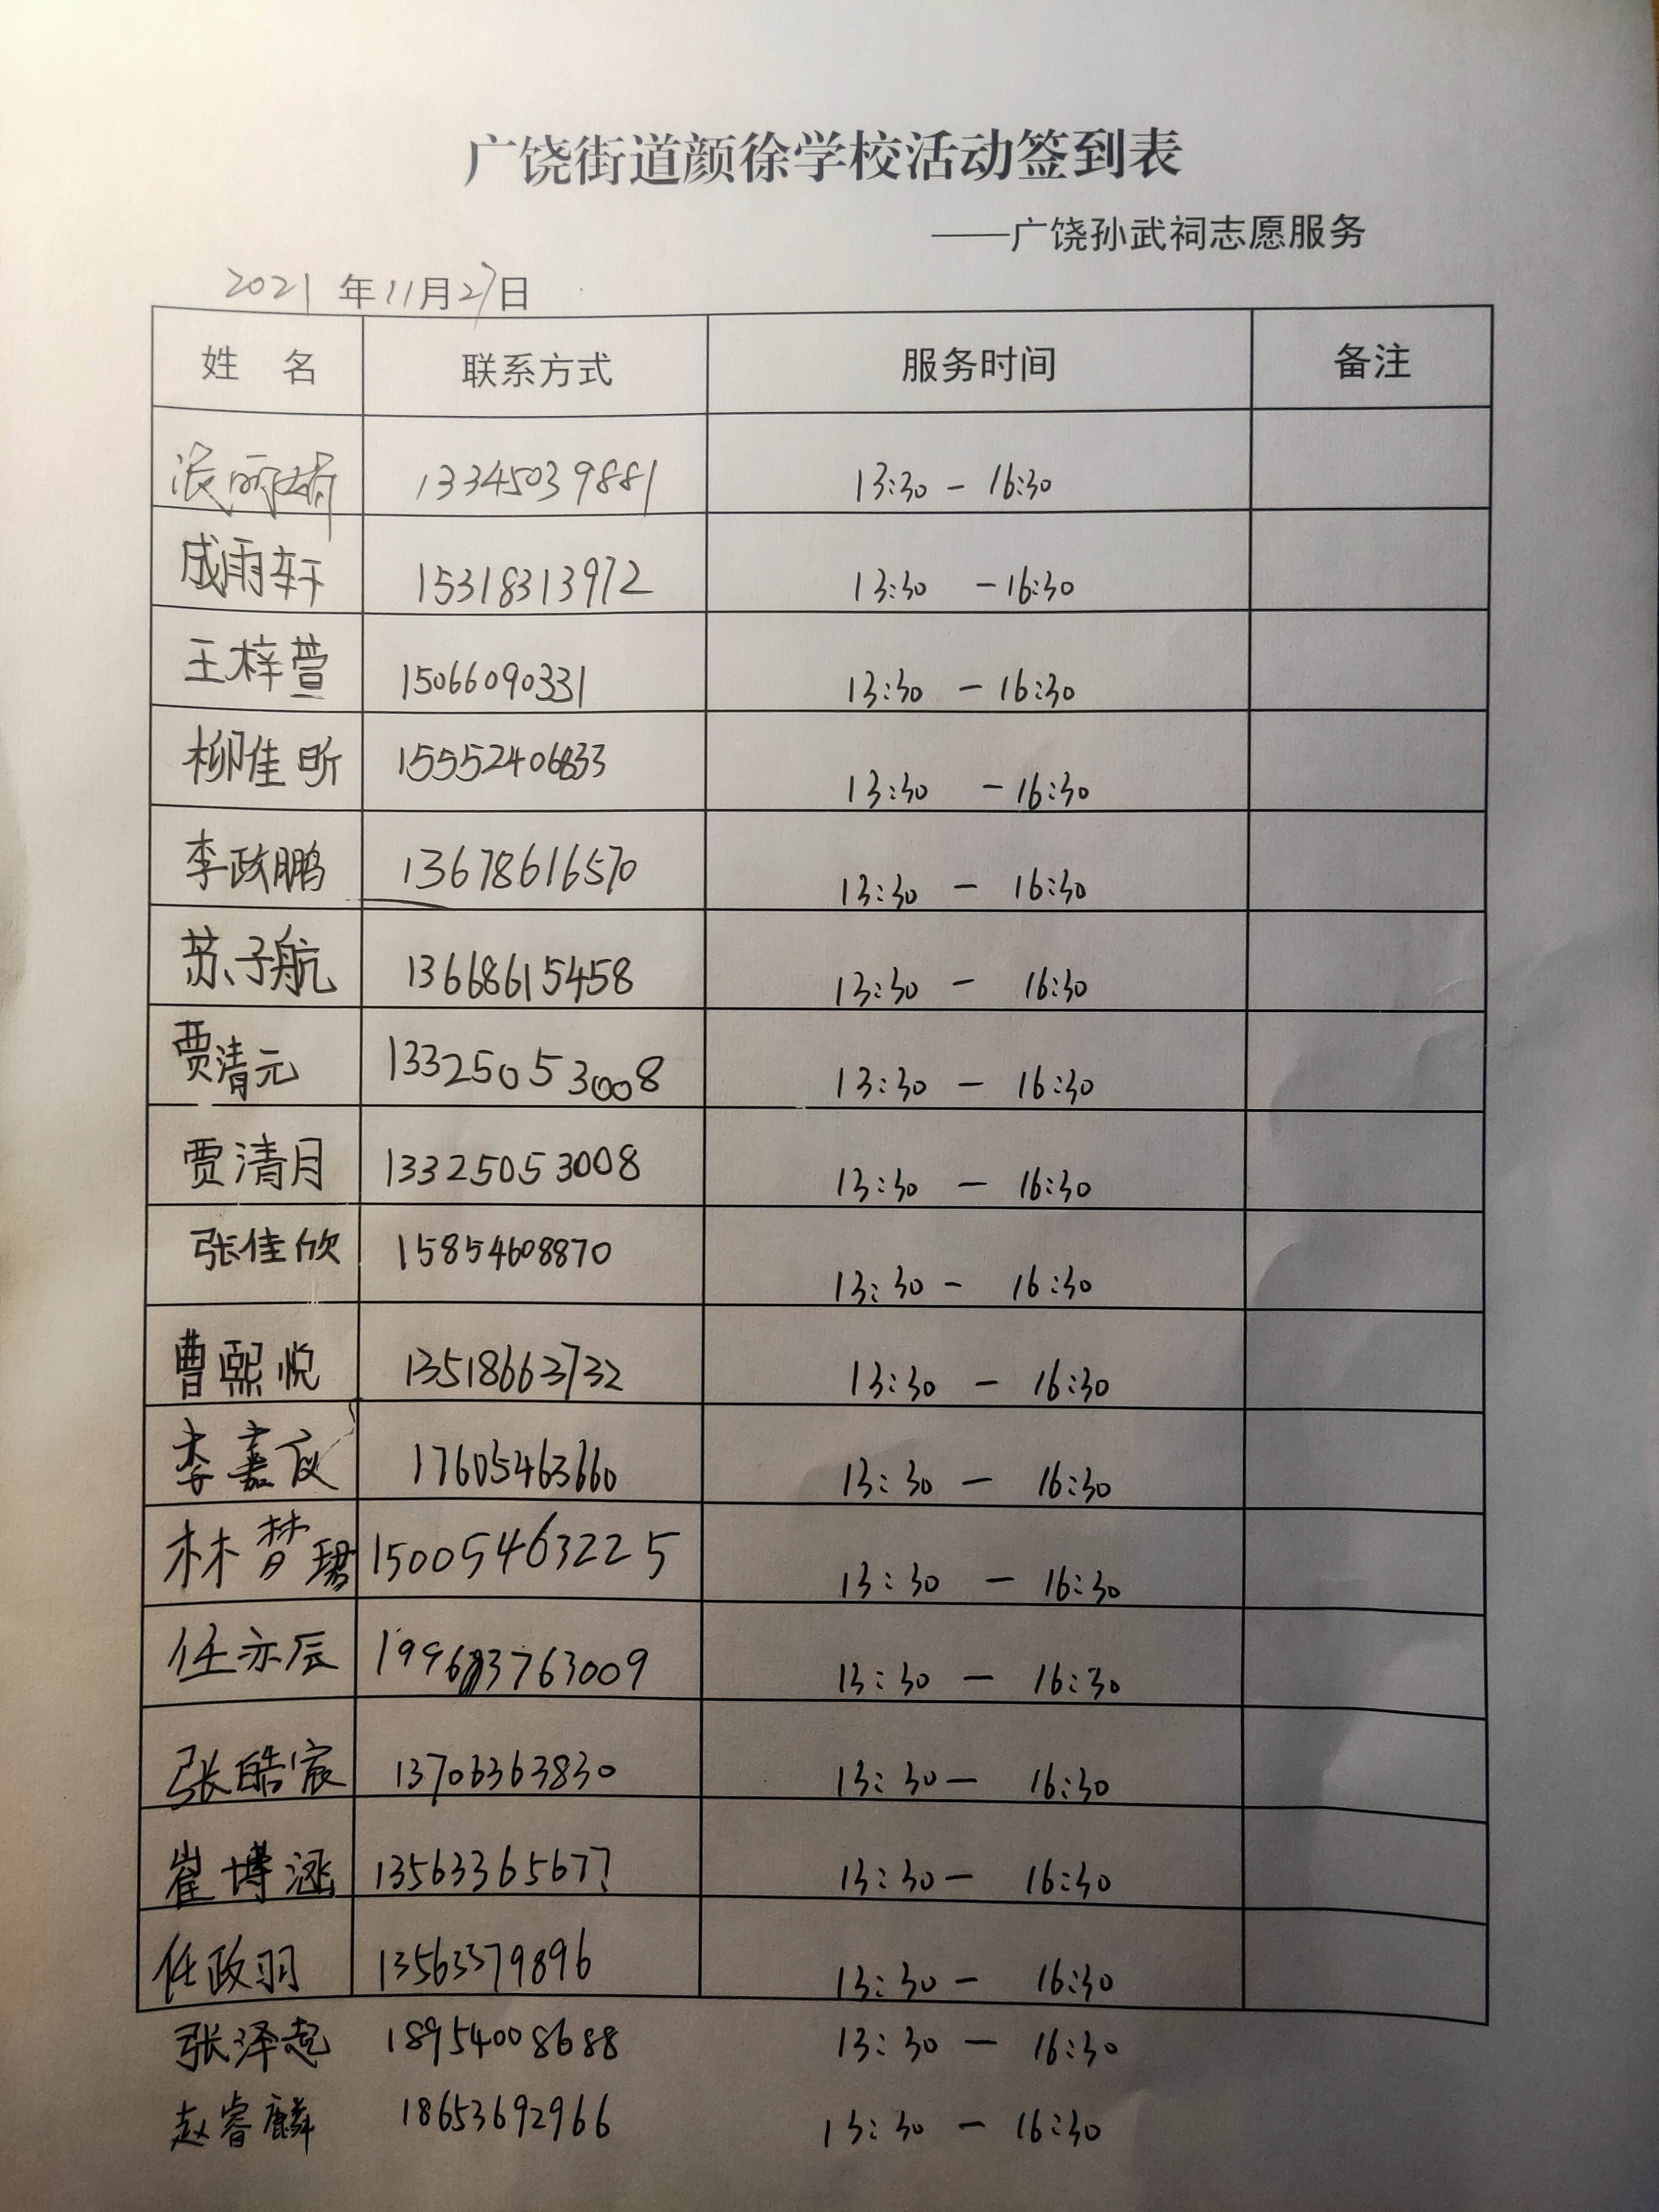 广饶街道颜徐学校活动签到表
——广饶孙武祠志愿服务
2021 年 11 月 27 日
姓 名 联系方式 服务时间 备注
13345039881 13:30 - 16:30
成雨轩 15318313972 13:30 - 16:30
王梓萱 15066090331 13:30 - 16:30
柳佳昕 15552406833 13:30 - 16:30
李政鹏 13678616570 13:30 - 16:30
苏子航 13668615458 13:30 - 16:30
贾清元 13325053008 13:30 - 16:30
贾清月 13325053008 13:30 - 16:30
张佳欣 15854608870 13:30 - 16:30
曹熙悦 13518663732 13:30 - 16:30
李嘉仪 17605463660 13:30 - 16:30
林梦珺 15005463225 13:30 - 16:30
任亦辰 13:30 - 16:30
张皓宸 13706363830 13:30 - 16:30
崔博涵 13563365677 13:30 - 16:30
任政羽 13563379896 13:30 - 16:30
张泽起 18954008688 13:30 - 16:30
赵睿麟 18653692966 13:30 - 16:30